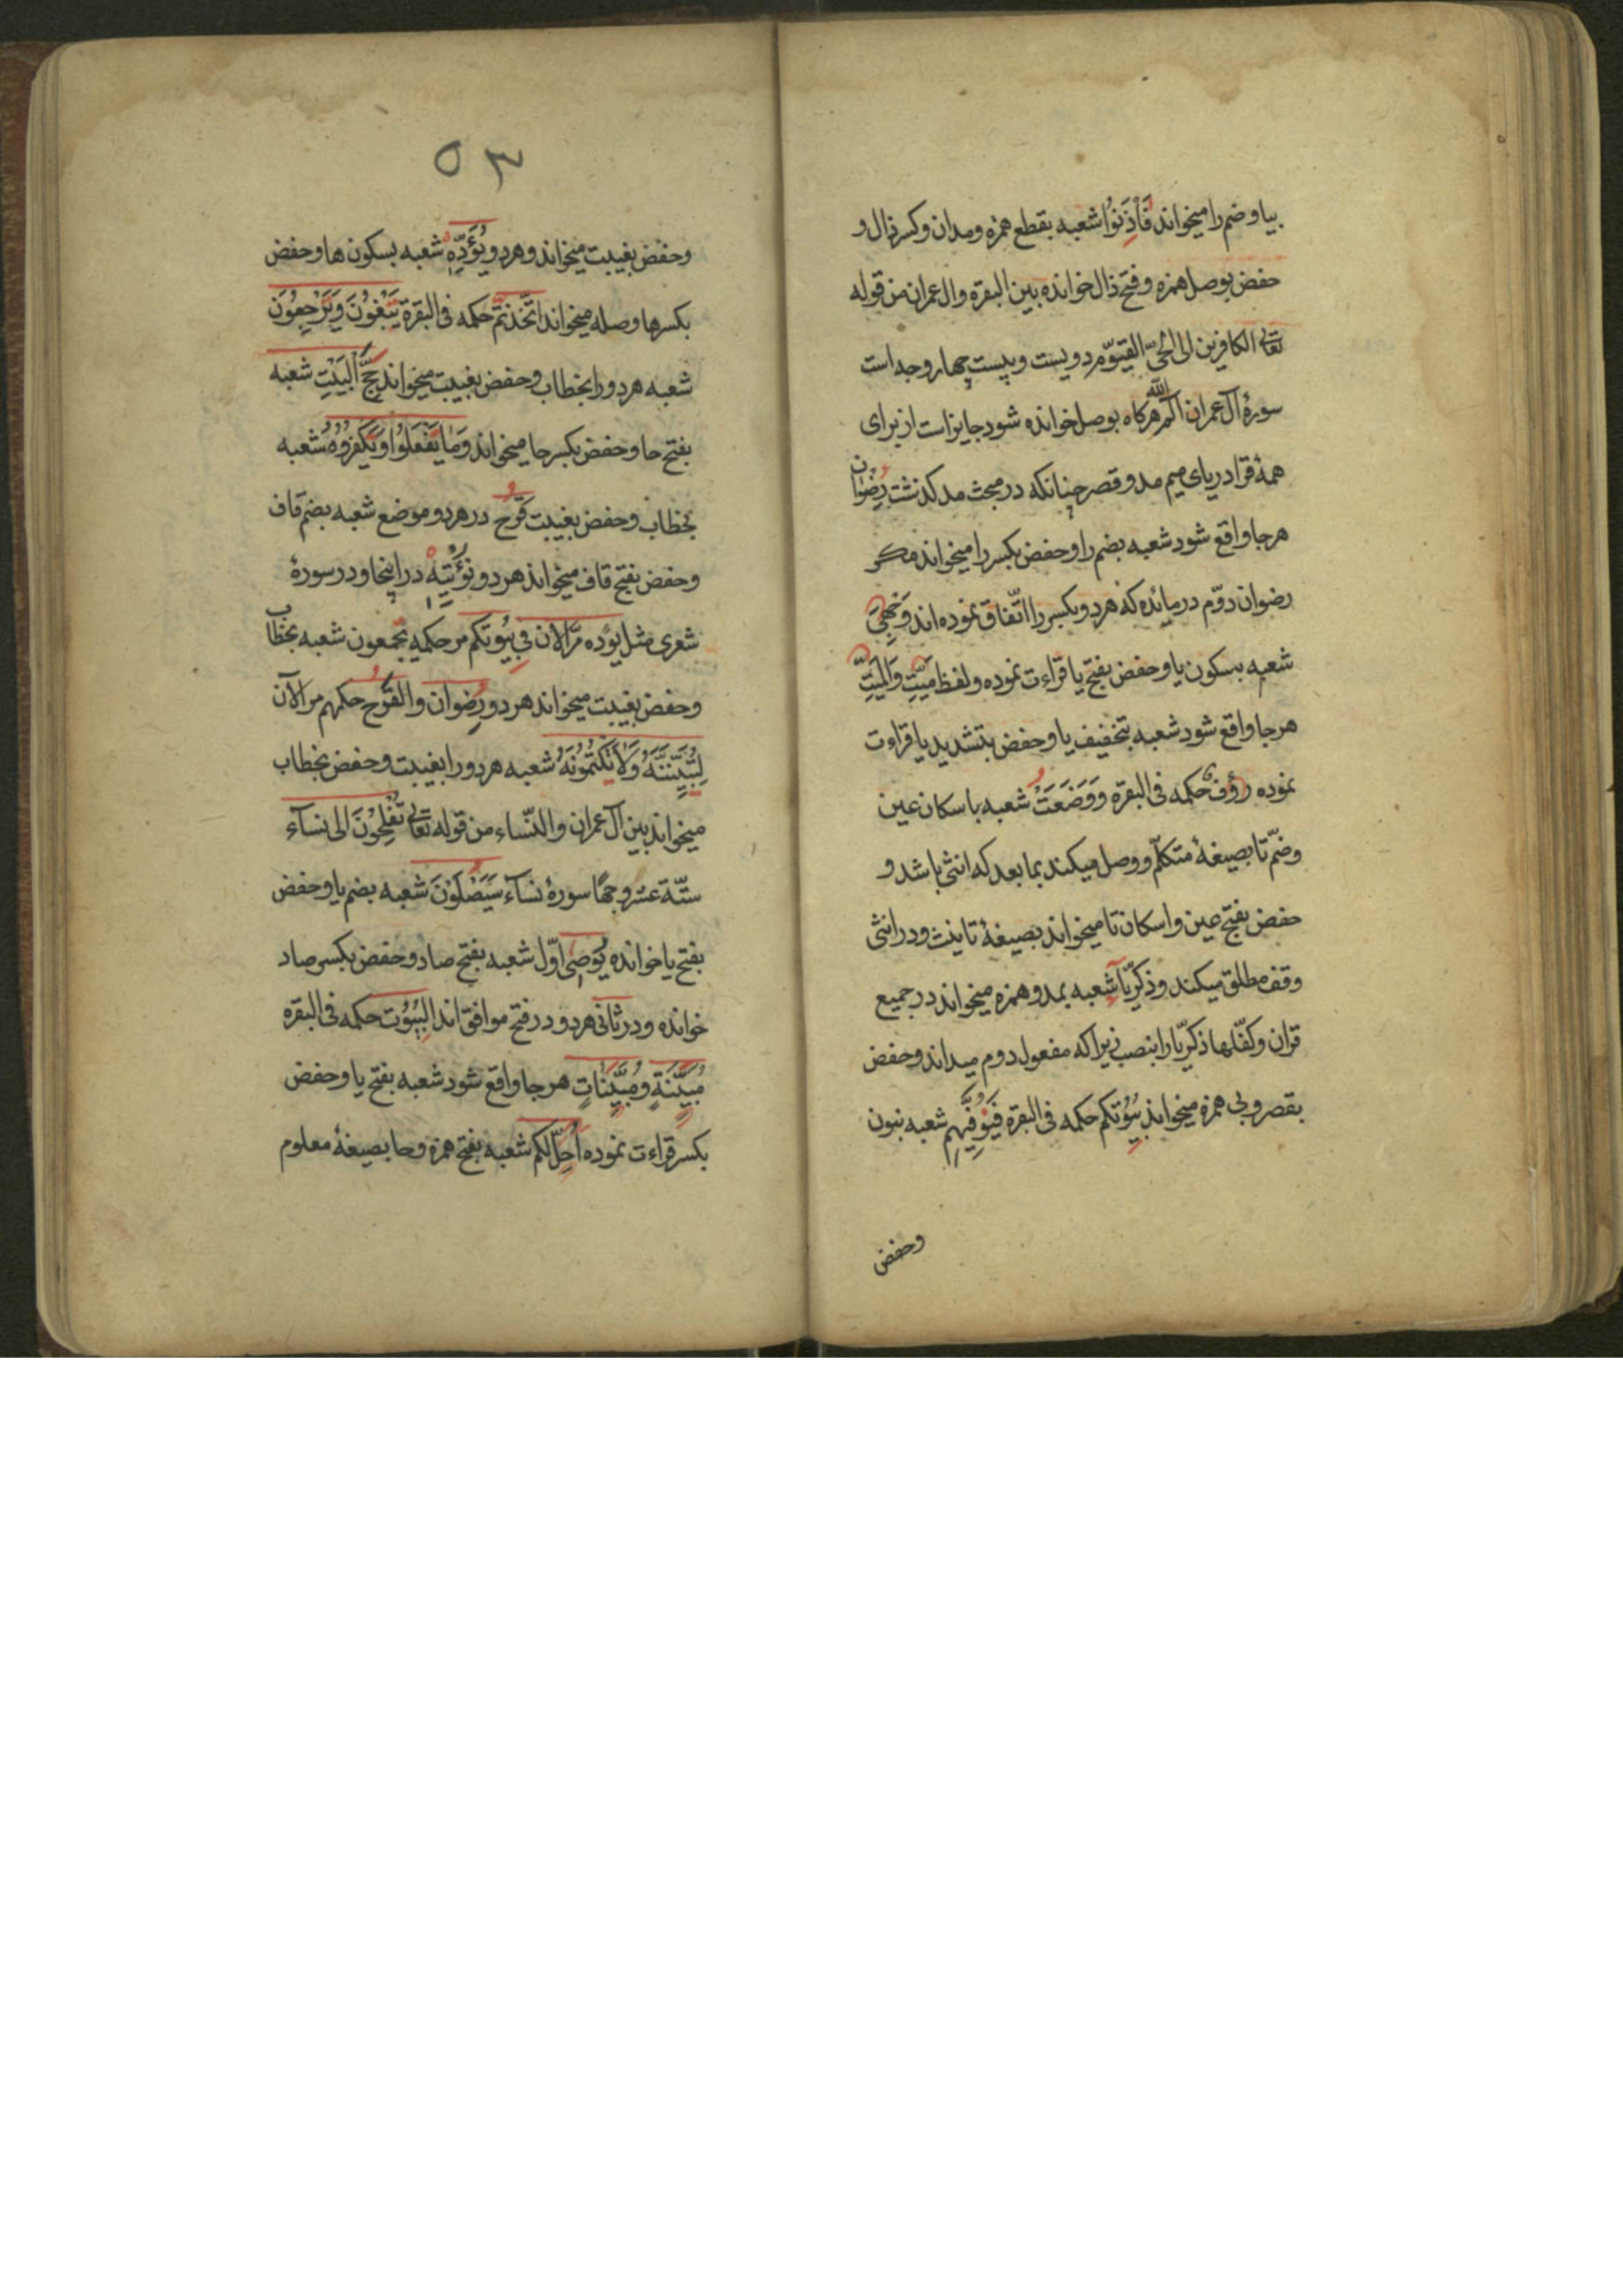 بیا وضم را میخواند فَأْذَنُوا شعبه بقطع همزه ومدان وکسر ذال و
حفض بوصل همزه وفتح ذال خوانده بین البقرة وال عمران من قوله
تعالی الکافرین الی الحیّ القیّوم دویست وبیست چهار وجه است
سورهٔ آل عمران الٓمٓ الله هرکاه بوصل خوانده شود جایز است از برای
همهٔ قرا در یای میم مد وقصر چنانکه در مبحث مد کذشت رِضْوان
هرجا واقع شود شعبه بضم را وحفض بکسر را میخواند مکر
رضوان دوّم در مائده که هردو بکسر را اتّفاق نموده اند وَجْهِیَ
شعبه بسکون یا وحفض بفتح یا قراءت نموده ولفظ مَیِّتِ وَالْمَیِّتِ
هرجا واقع شود شعبه بتخفیف یا وحفض بتشدید یا قراءت
نموده رؤف حکمه فی البقره وَوَضَعَتْ شعبه باسکان عین
وضمّ تا بصیغهٔ متکلّم ووصل میکند بما بعد که انثی باشد و
حفض بفتح عین واسکان تا میخواند بصیغهٔ تانیث ودر انثی
وقف مطلق میکند وذکریّآ شعبه بمد وهمزه میخواند در جمیع
قران وکفّلها ذکریّا را بنصب زیرا که مفعول دوم میداند وحفض
بقصر وبی همزه میخواند بُیُوتکم حکمه فی البقره فَیُوَفِّیهِم شعبه بنون
وحفض
۵۳
وحفض بغیبت میخواند وهردو یُؤَدِّهِ شعبه بسکون ها وحفض
بکسرها وصله میخواند اتّخذتم حکمه فی البقرة یَبْغُونَ وَیُرْجَعُونَ
شعبه هردو را بخطاب وحفض بغیبت میخواند حِجُّ الْبَیْتِ شعبه
بفتح حا وحفض بکسر حا میخواند وَمَا یَفْعَلُوا وَیُکْفَرُوهُ شعبه
بخطاب وحفض بغیبت قَرْح در هردو موضع شعبه بضمّ قاف
وحفض بفتح قاف میخواند هردو نُؤْتِهِ در اینجا ودر سورهٔ
شعری مثل یؤده مرّ الان فی بُیُوتکم مر حکمه یجمعون شعبه بخطاب
وحفض بغیبت میخواند هردو رضوان والقرح حکمهم مر الآن
لِتُبَیِّنُنَّهُ وَلَا تَکْتُمُونَهُ شعبه هردو را بغیبت وحفض بخطاب
میخواند بین آل عمران والنّساء من قوله تعالی تُفْلِحُوْنَ الی نسآء
ستّة عشر وجهًا سورهٔ نسآء سَیَصْلَوْنَ شعبه بضم یا وحفض
بفتح یا خوانده یُوصِی اوّل شعبه بفتح صاد وحفض بکسر صاد
خوانده ودر ثانی هردو در فتح موافق اند الْبُیُوْت حکمه فی البقره
مُبَیِّنَةٍ ومُبَیِّنَاتٍ هرجا واقع شود شعبه بفتح یا وحفض
بکسر قراءت نموده اُحِلَّ لکم شعبه بفتح همزه وحا بصیغهٔ معلوم